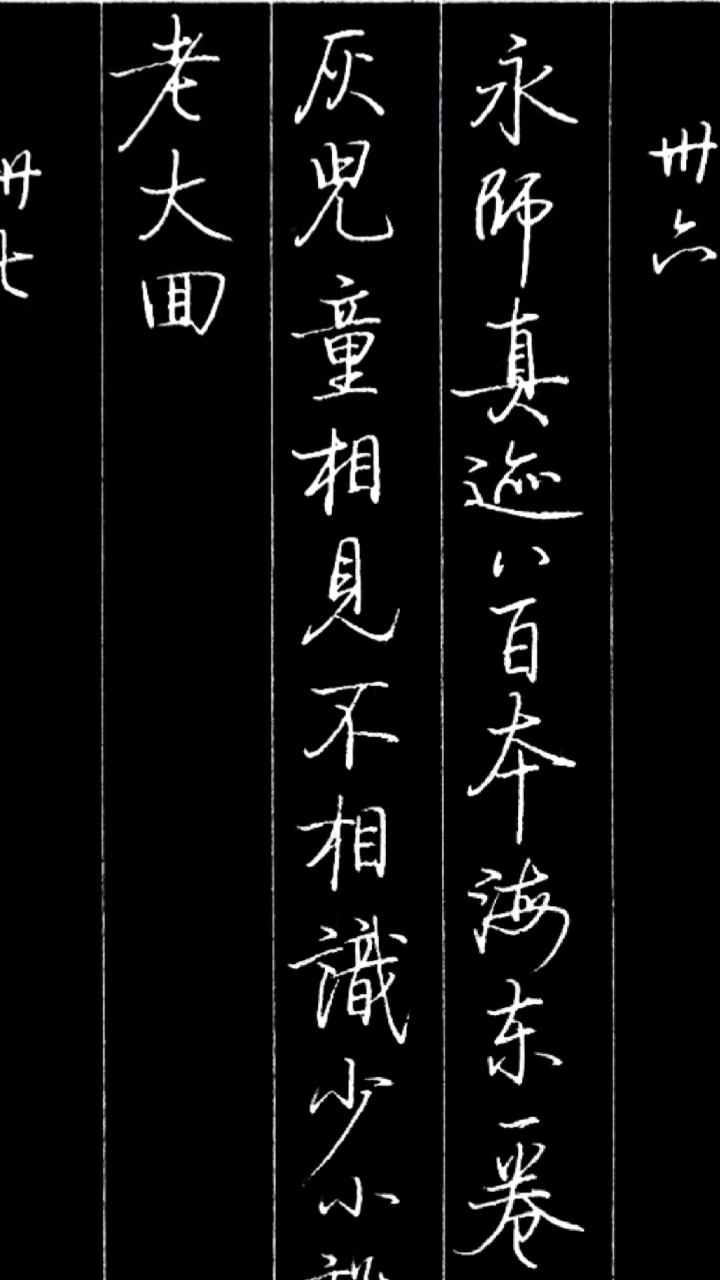 卅六
永師真迹八百本海东一卷
灰兒童相見不相識少小
老大囬
卅七